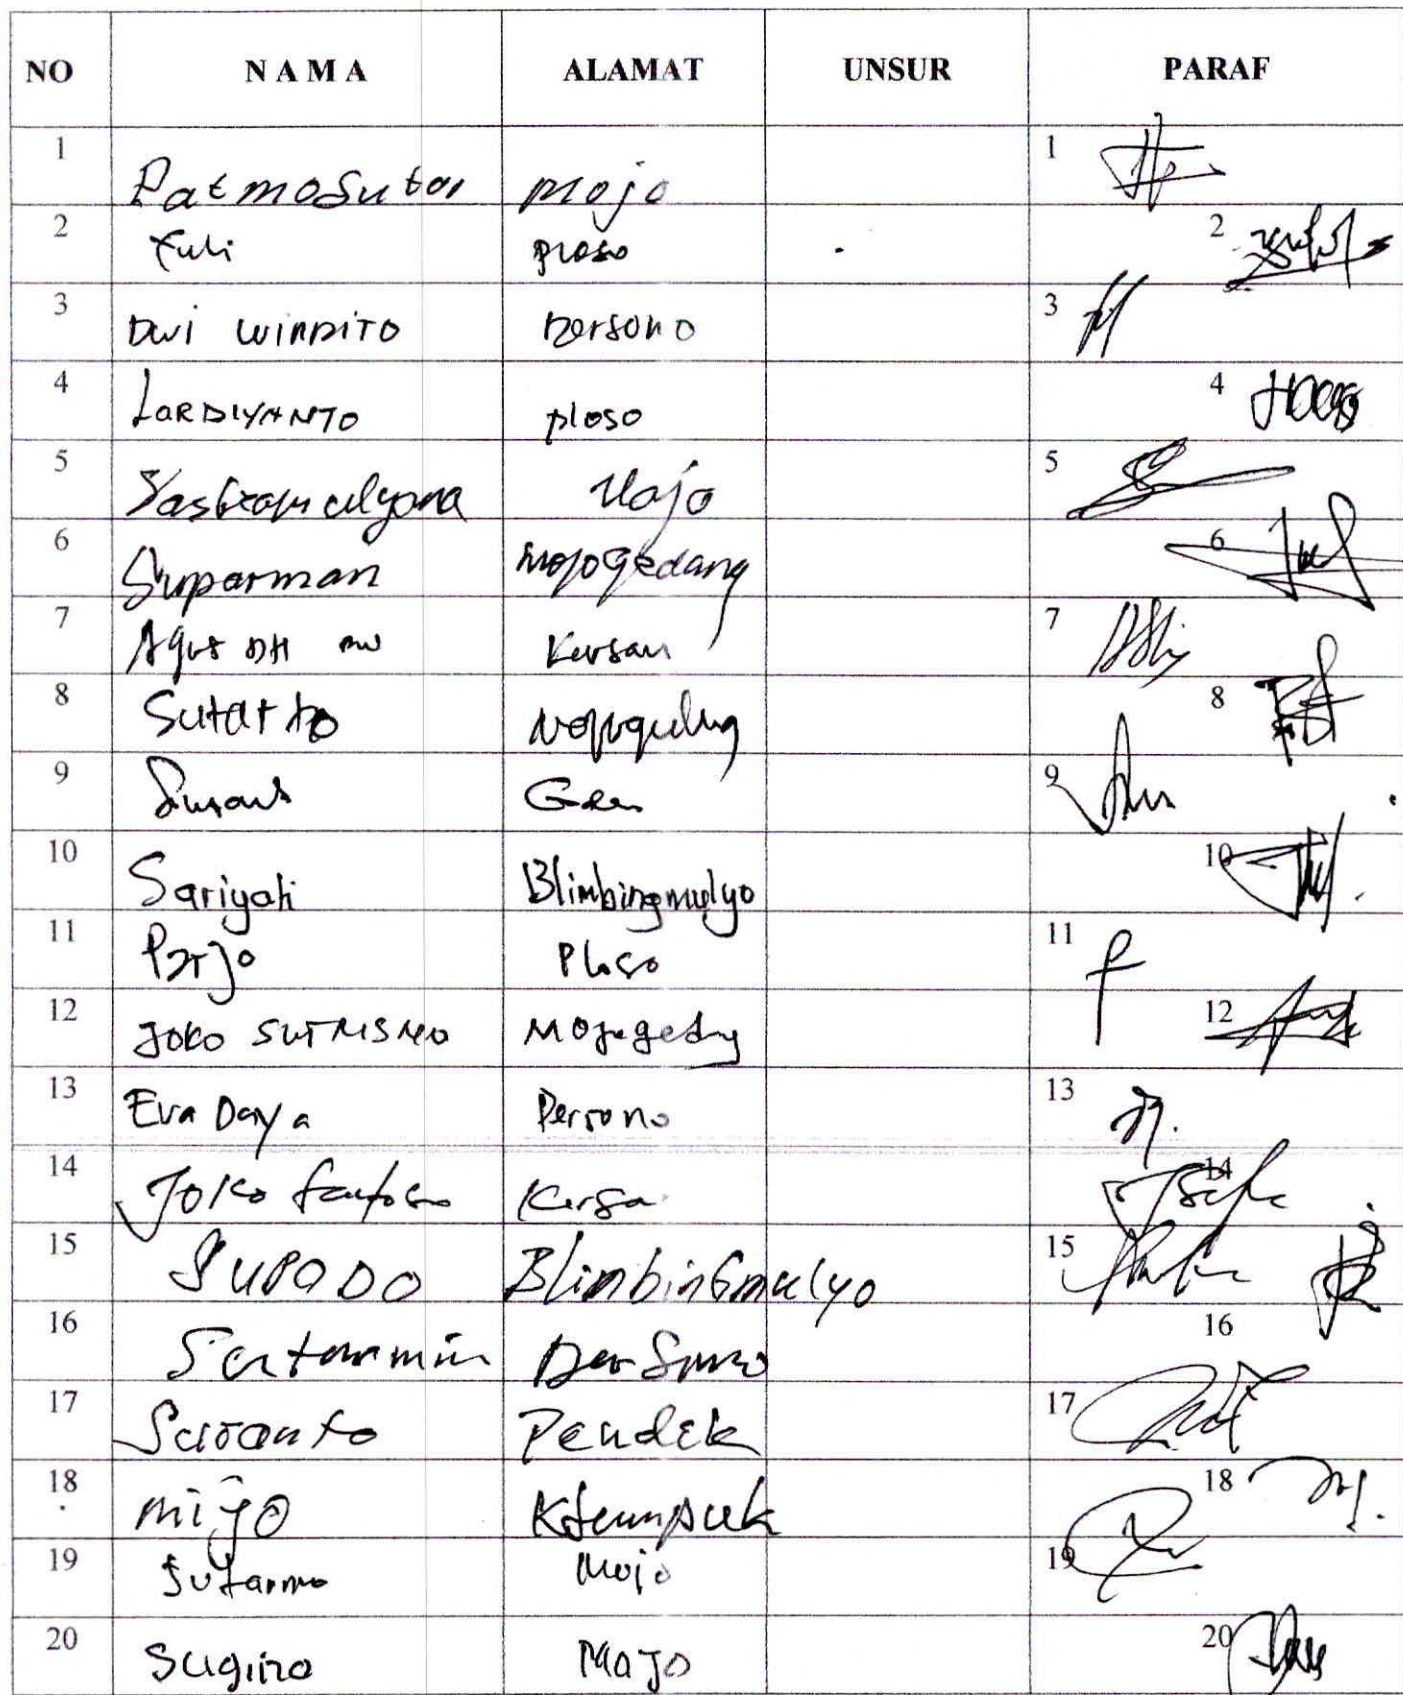 NO NAMA ALAMAT UNSUR PARAF
1 Patmosutar Mojo 1
2 Yuli Ploso 2
3 DWI WINDITO Dersono 3
4 LARDIYANTO ploso 4
5 Mojo 5
6 Suparman Mojogedang 6
7 Agus DH Kersan 7
8 Sutarto 8
9 9
10 Sariyati Blimbingmulyo 10
11 Parjo Ploso 11
12 JOKO SUTRISNO Mojogedang 12
13 Eva Daya Dersono 13
14 Joko Santoso Kersa 14
15 SUPODO BlimbinGmulyo 15
16 Sutarmin Dersono 16
17 Suranto Pendek 17
18 miyo 18
19 Sutarmo Mojo 19
20 Sugino MaJo 20